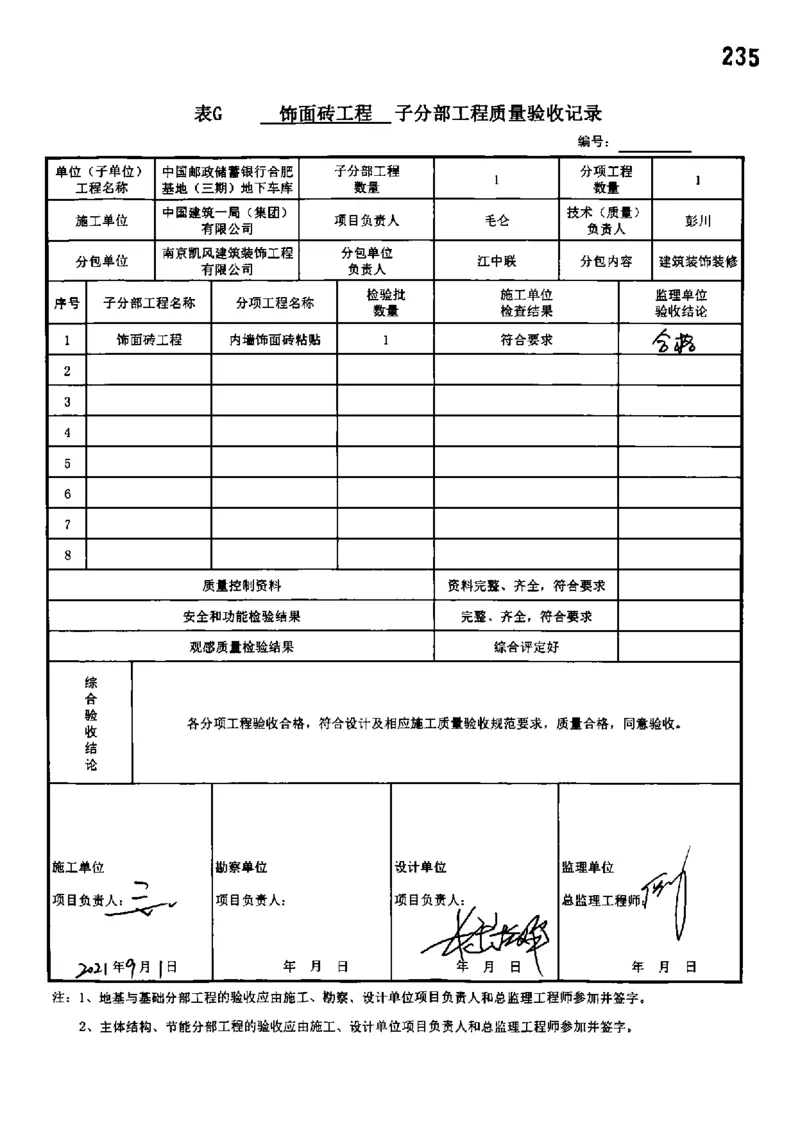 235
表G 饰面砖工程 子分部工程质量验收记录
编号：
单位（子单位）工程名称 中国邮政储蓄银行合肥基地（三期）地下车库 子分部工程数量 1 分项工程数量 1
施工单位 中国建筑一局（集团）有限公司 项目负责人 毛仑 技术（质量）负责人 彭川
分包单位 南京凯风建筑装饰工程有限公司 分包单位负责人 江中联 分包内容 建筑装饰装修
序号 子分部工程名称 分项工程名称 检验批数量 施工单位检查结果 监理单位验收结论
1 饰面砖工程 内墙饰面砖粘贴 1 符合要求 合格
2
3
4
5
6
7
8
质量控制资料 资料完整、齐全，符合要求
安全和功能检验结果 完整、齐全，符合要求
观感质量检验结果 综合评定好
综合验收结论 各分项工程验收合格，符合设计及相应施工质量验收规范要求，质量合格，同意验收。
施工单位 勘察单位 设计单位 监理单位
项目负责人： 项目负责人： 项目负责人： 总监理工程师：
2021年9月1日 年 月 日 年 月 日 年 月 日
注：1、地基与基础分部工程的验收应由施工、勘察、设计单位项目负责人和总监理工程师参加并签字。
2、主体结构、节能分部工程的验收应由施工、设计单位项目负责人和总监理工程师参加并签字。